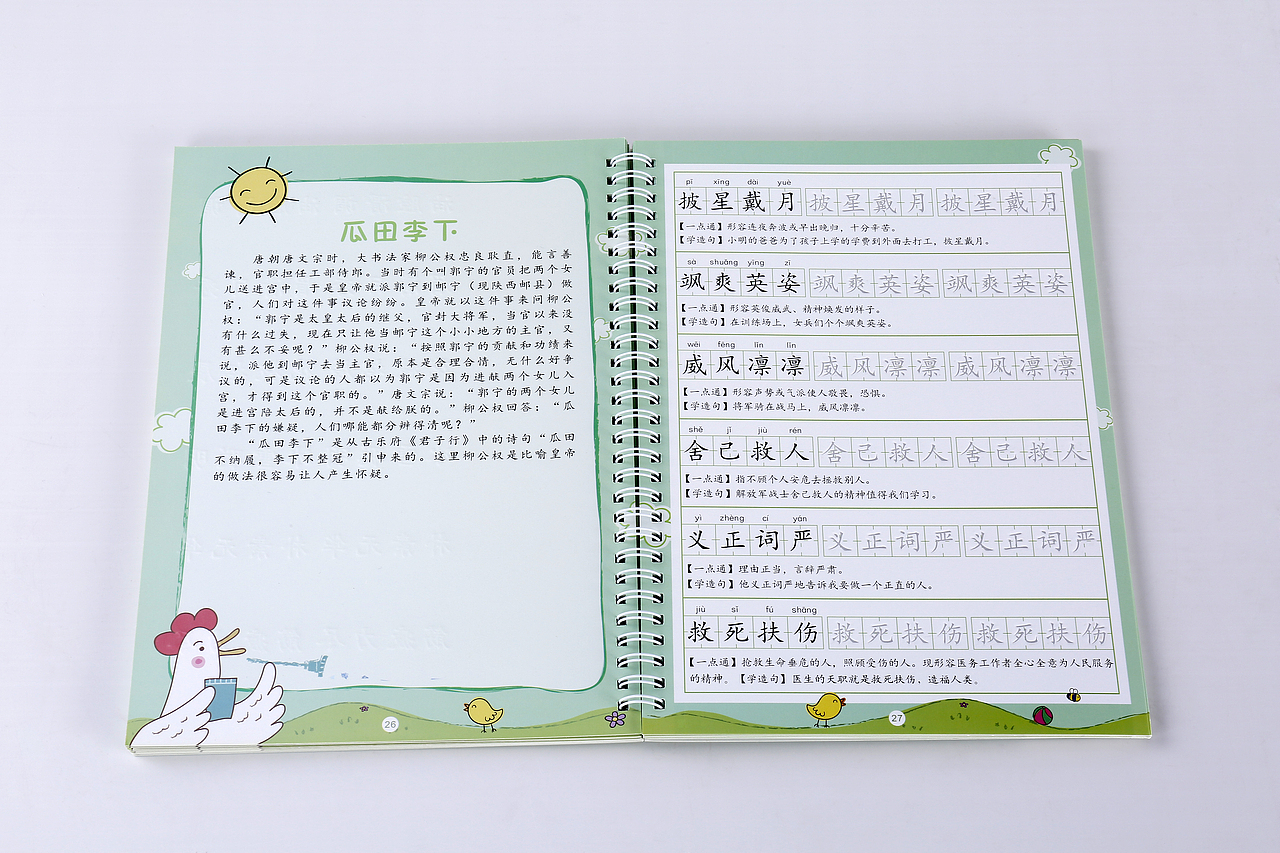 瓜田李下
唐朝唐文宗时，大书法家柳公权忠良耿直，能言善
谏，官职担任工部侍郎。当时有个叫郭宁的官员把两个女
儿送进宫中，于是皇帝就派郭宁到邮宁（现陕西邮县）做
官，人们对这件事议论纷纷。皇帝就以这件事来问柳公
权：“郭宁是太皇太后的继父，官封大将军，当官以来没
有什么过失，现在只让他当邮宁这个小小地方的主官，又
有甚么不妥呢？”柳公权说：“按照郭宁的贡献和功绩来
说，派他到邮宁去当主官，原本是合理合情，无什么好争
议的，可是议论的人都以为郭宁是因为进献两个女儿入
宫，才得到这个官职的。”唐文宗说：“郭宁的两个女儿
是进宫陪太后的，并不是献给朕的。”柳公权回答：“瓜
田李下的嫌疑，人们哪能都分辨得清呢？”
“瓜田李下”是从古乐府《君子行》中的诗句“瓜田
不纳履，李下不整冠”引申来的。这里柳公权是比喻皇帝
的做法很容易让人产生怀疑。
26
pī xīng dài yuè
披星戴月 披星戴月 披星戴月
【一点通】形容连夜奔波或早出晚归，十分辛苦。
【学造句】小明的爸爸为了孩子上学的学费到外面去打工，披星戴月。
sà shuǎng yīng zī
飒爽英姿 飒爽英姿 飒爽英姿
【一点通】形容英俊威武、精神焕发的样子。
【学造句】在训练场上，女兵们个个飒爽英姿。
wēi fēng lǐn lǐn
威风凛凛 威风凛凛 威风凛凛
【一点通】形容声势或气派使人敬畏，恐惧。
【学造句】将军骑在战马上，威风凛凛。
shě jǐ jiù rén
舍己救人 舍己救人 舍己救人
【一点通】指不顾个人安危去拯救别人。
【学造句】解放军战士舍己救人的精神值得我们学习。
yì zhèng cí yán
义正词严 义正词严 义正词严
【一点通】理由正当，言辞严肃。
【学造句】他义正词严地告诉我要做一个正直的人。
jiù sǐ fú shāng
救死扶伤 救死扶伤 救死扶伤
【一点通】抢救生命垂危的人，照顾受伤的人。现形容医务工作者全心全意为人民服务
的精神。【学造句】医生的天职就是救死扶伤，造福人类。
27